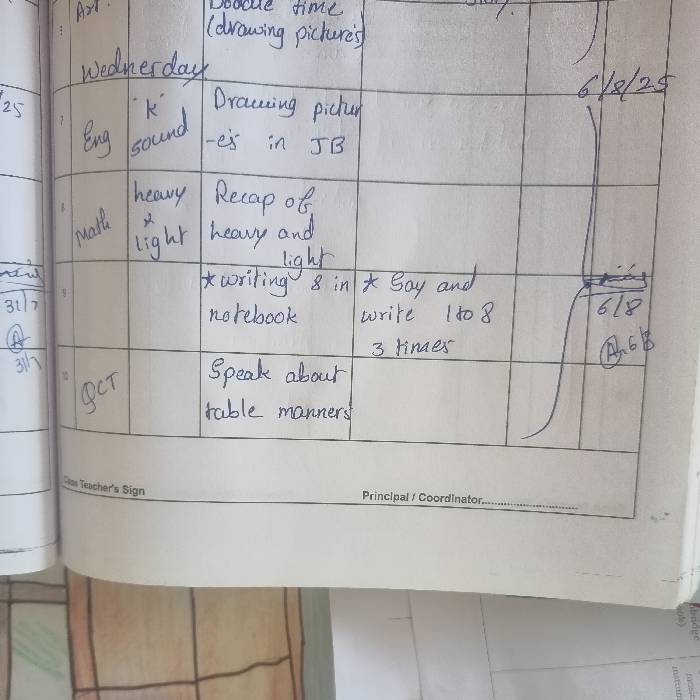 Art.
Doodle time
(drawing pictures)
Wednesday
6/8/25
Eng
'k'
sound
Drawing pictur
-es in JB
Math
heavy
&
light
Recap of
heavy and
light
* writing 8 in
notebook
* Say and
write 1 to 8
3 times
6/8
6/8
GCT
Speak about
table manners
Class Teacher's Sign
Principal / Coordinator
/25
31/7
A
31/7